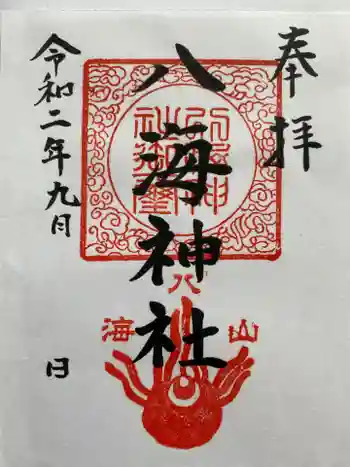 奉拝
八海神社
令和二年九月 日
八
海
山